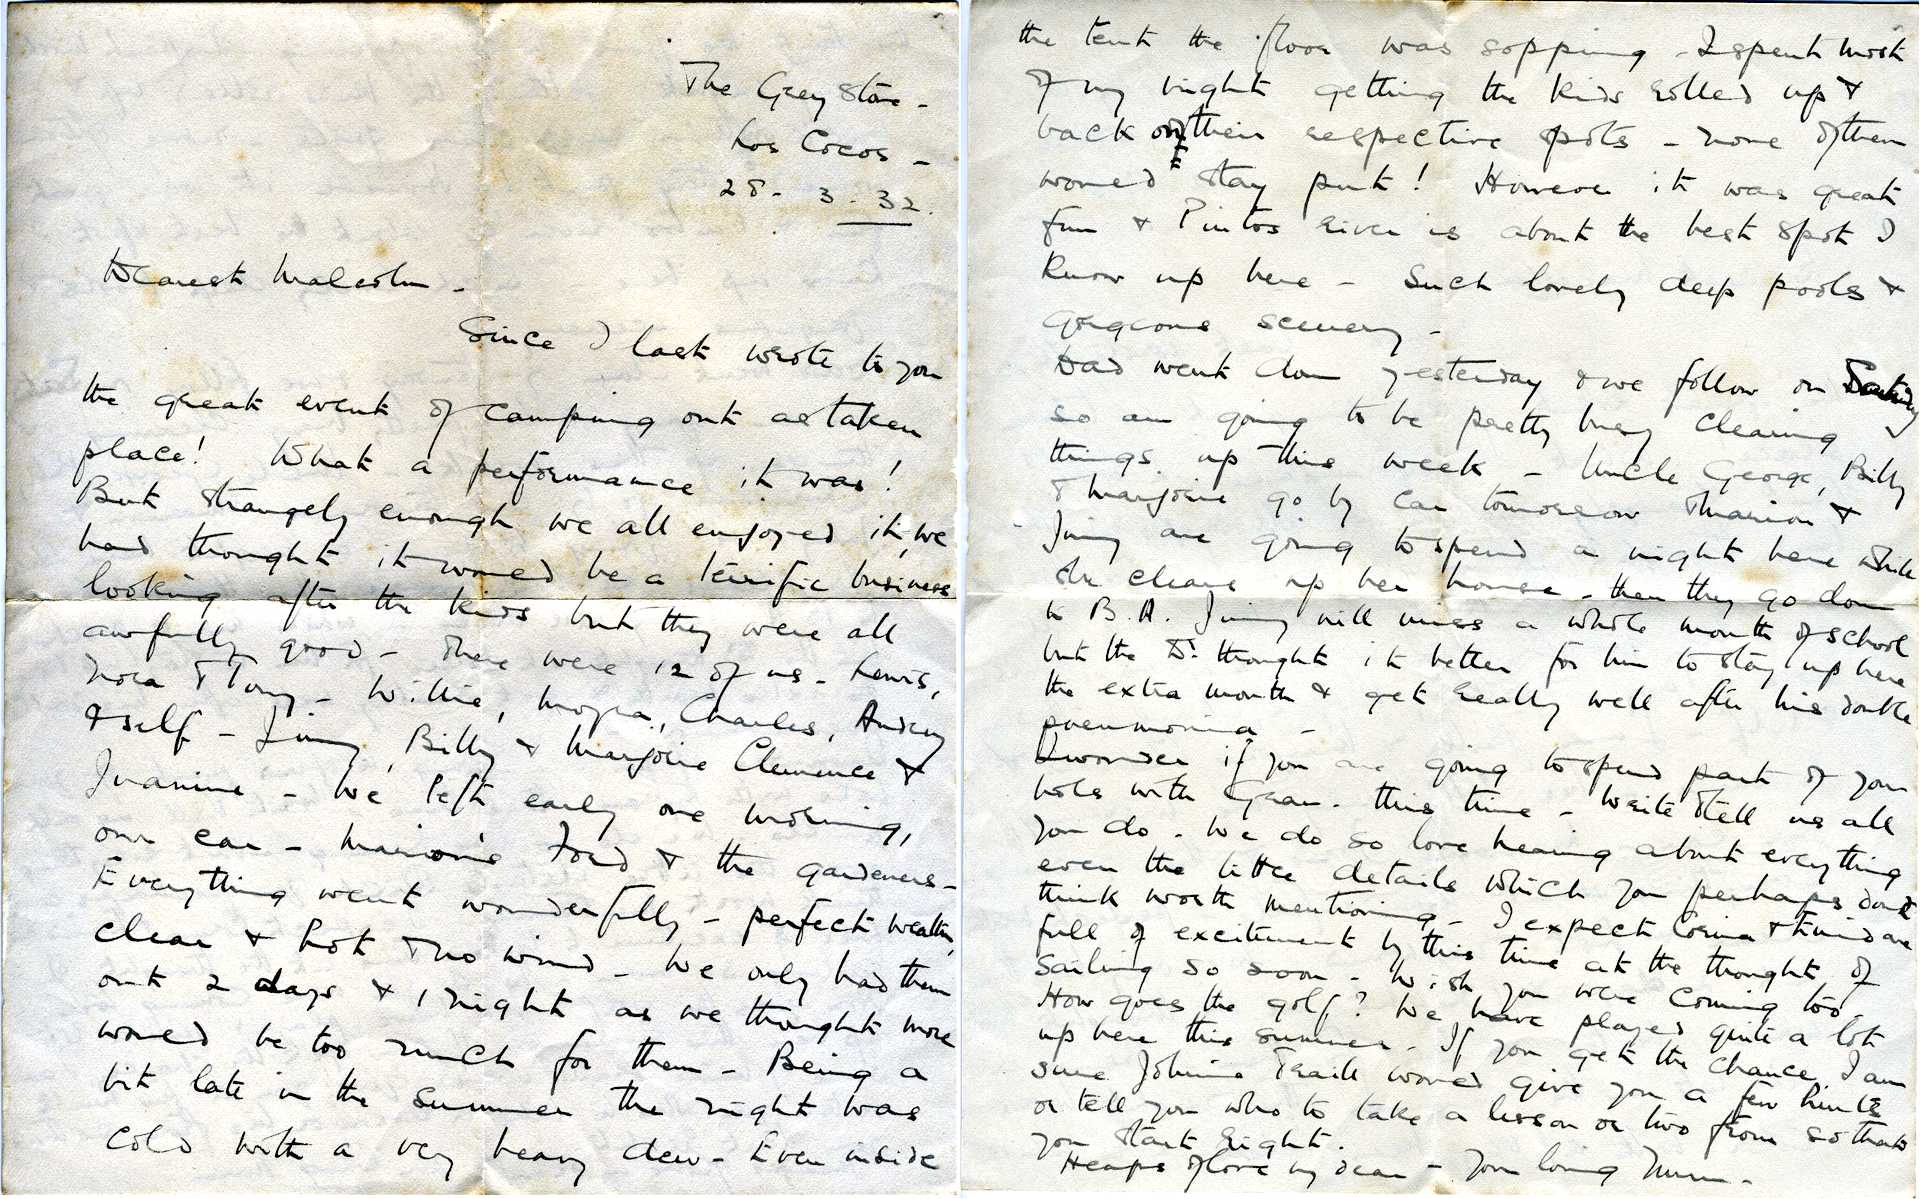 The Grey Stone -
Los Cocos -
28 - 3 - 32.
Dearest Malcolm -
Since I last wrote to you
the great event of camping out as taken
place! What a performance it was!
But strangely enough we all enjoyed it, we
had thought it would be a terrific business
looking after the kids but they were all
awfully good - there were 12 of us - Lewis,
Nora & Tony - Willie, Moyra, Charles, Audrey
& self - Jimmy, Billy & Marjorie Clemence &
Juanine - We left early one morning,
our car - Marion's Ford & the gardeners -
Everything went wonderfully - perfect weather,
clear & hot & no wind - We only had them
out 2 days & 1 night as we thought more
would be too much for them - Being a
bit late in the summer the night was
cold with a very heavy dew - Even inside
the tent the floor was sopping - I spent most
of my night getting the kids rolled up &
back on their respective spots - none of them
would stay put! However it was great
fun & Pintos river is about the best spot I
know up here - Such lovely deep pools &
gorgeous scenery -
Dad went down yesterday & we follow on
so am going to be pretty busy clearing
things up this week - Uncle George, Billy
& Marjorie go by car tomorrow & Marion &
Jimmy are going to spend a night here while
she clears up her house - then they go down
to B.A. Jimmy will miss a whole month of school
but the Dr. thought it better for him to stay up here
the extra month & get really well after his double
pneumonia -
I wonder if you are going to spend part of your
hols with Gran. this time - Write & tell us all
you do - We do so love hearing about everything
even the little details which you perhaps don't
think worth mentioning - I expect & are
full of excitement by this time at the thought of
sailing so soon - Wish you were coming too.
How goes the golf? We have played quite a lot
up here this summer - If you get the chance, I am
sure Johnnie Traill would give you a few hints
or tell you who to take a lesson or two from so that
you start right.
Heaps of love my dear - your loving Mum -